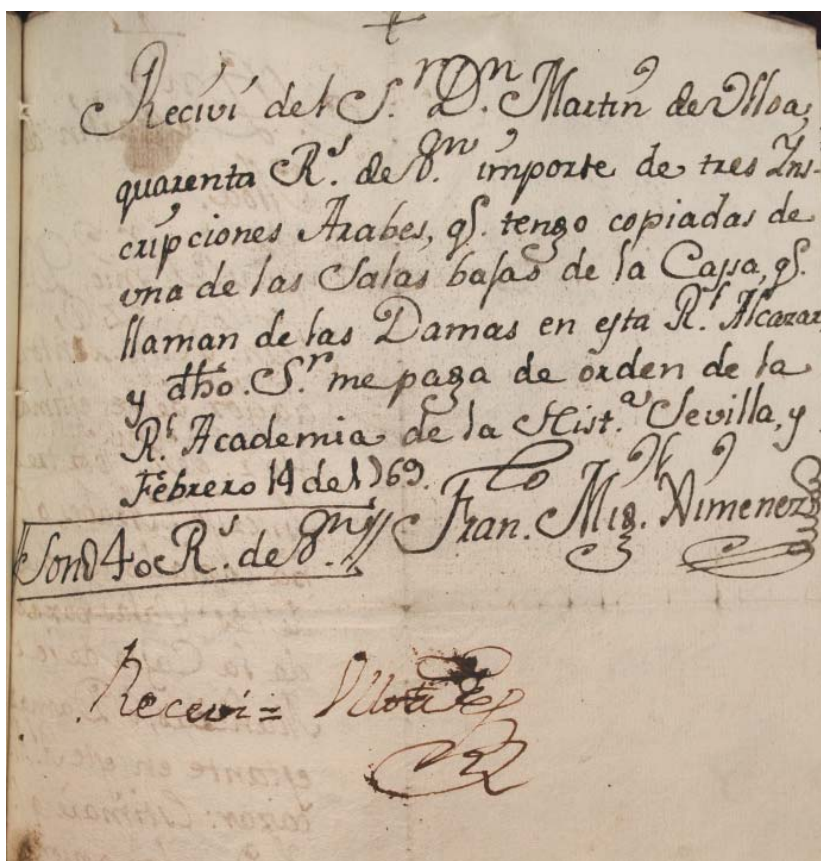 Reciví del S.ʳ D.ⁿ Martin de Vlloa,
quarenta R.ˢ de v.ⁿ importe de tres Ins-
cripciones Arabes, q̃. tengo copiadas de
vna de las Salas bajas de la Cassa, q̃.
llaman de las Damas en esta R.ˡ Alcazar,
y dho. S.ʳ me paga de orden de la
R.ˡ Academia de la Hist.ᵃ Sevilla, y
Febrero 14 de 1769.
Fran.ᶜᵒ Mig.ˡ Ximenez
Son 40 R.ˢ de v.ⁿ
Recevi = Vlloa